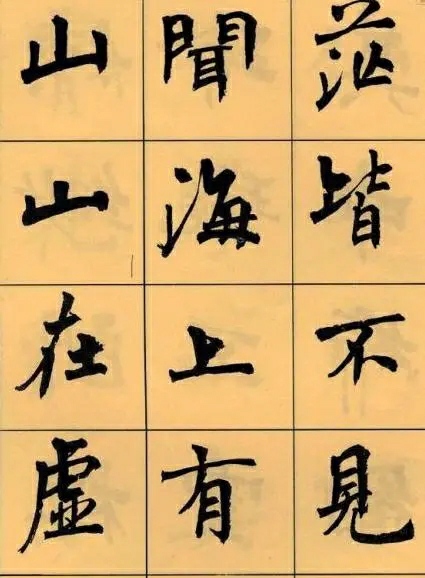 茫皆不見
聞海上有
山山在虛